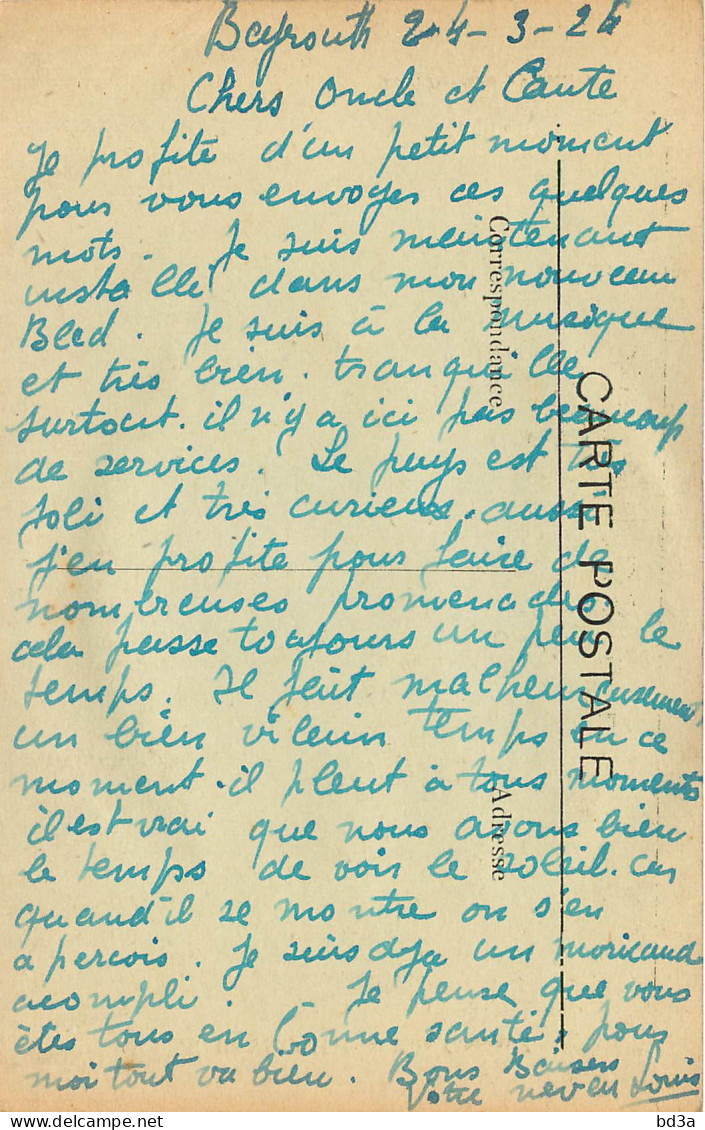 Bayrouth 24-3-24
Chers Oncle et Tante
Je profite d'un petit moment
pour vous envoyer ces quelques
mots. Je suis maintenant
installé dans mon nouveau
Bled. Je suis à la musique
et très bien. tranquille
surtout. il n'y a ici pas beaucoup
de services. Le pays est très
joli et très curieux. aussi
j'en profite pour faire de
nombreuses promenades
cela passe toujours un peu le
temps. Il fait malheureusement
un bien vilain temps en ce
moment. il pleut à tous moments
il est vrai que nous avons bien
le temps de voir le soleil. car
quand il se montre on s'en
apercois. Je suis dja un moricaud
acompli. - Je pense que vous
êtes tous en bonne santé, pour
moi tout va bien. Bons Baisers
Votre neveu Louis
Correspondance
CARTE POSTALE
Adresse
bd3a